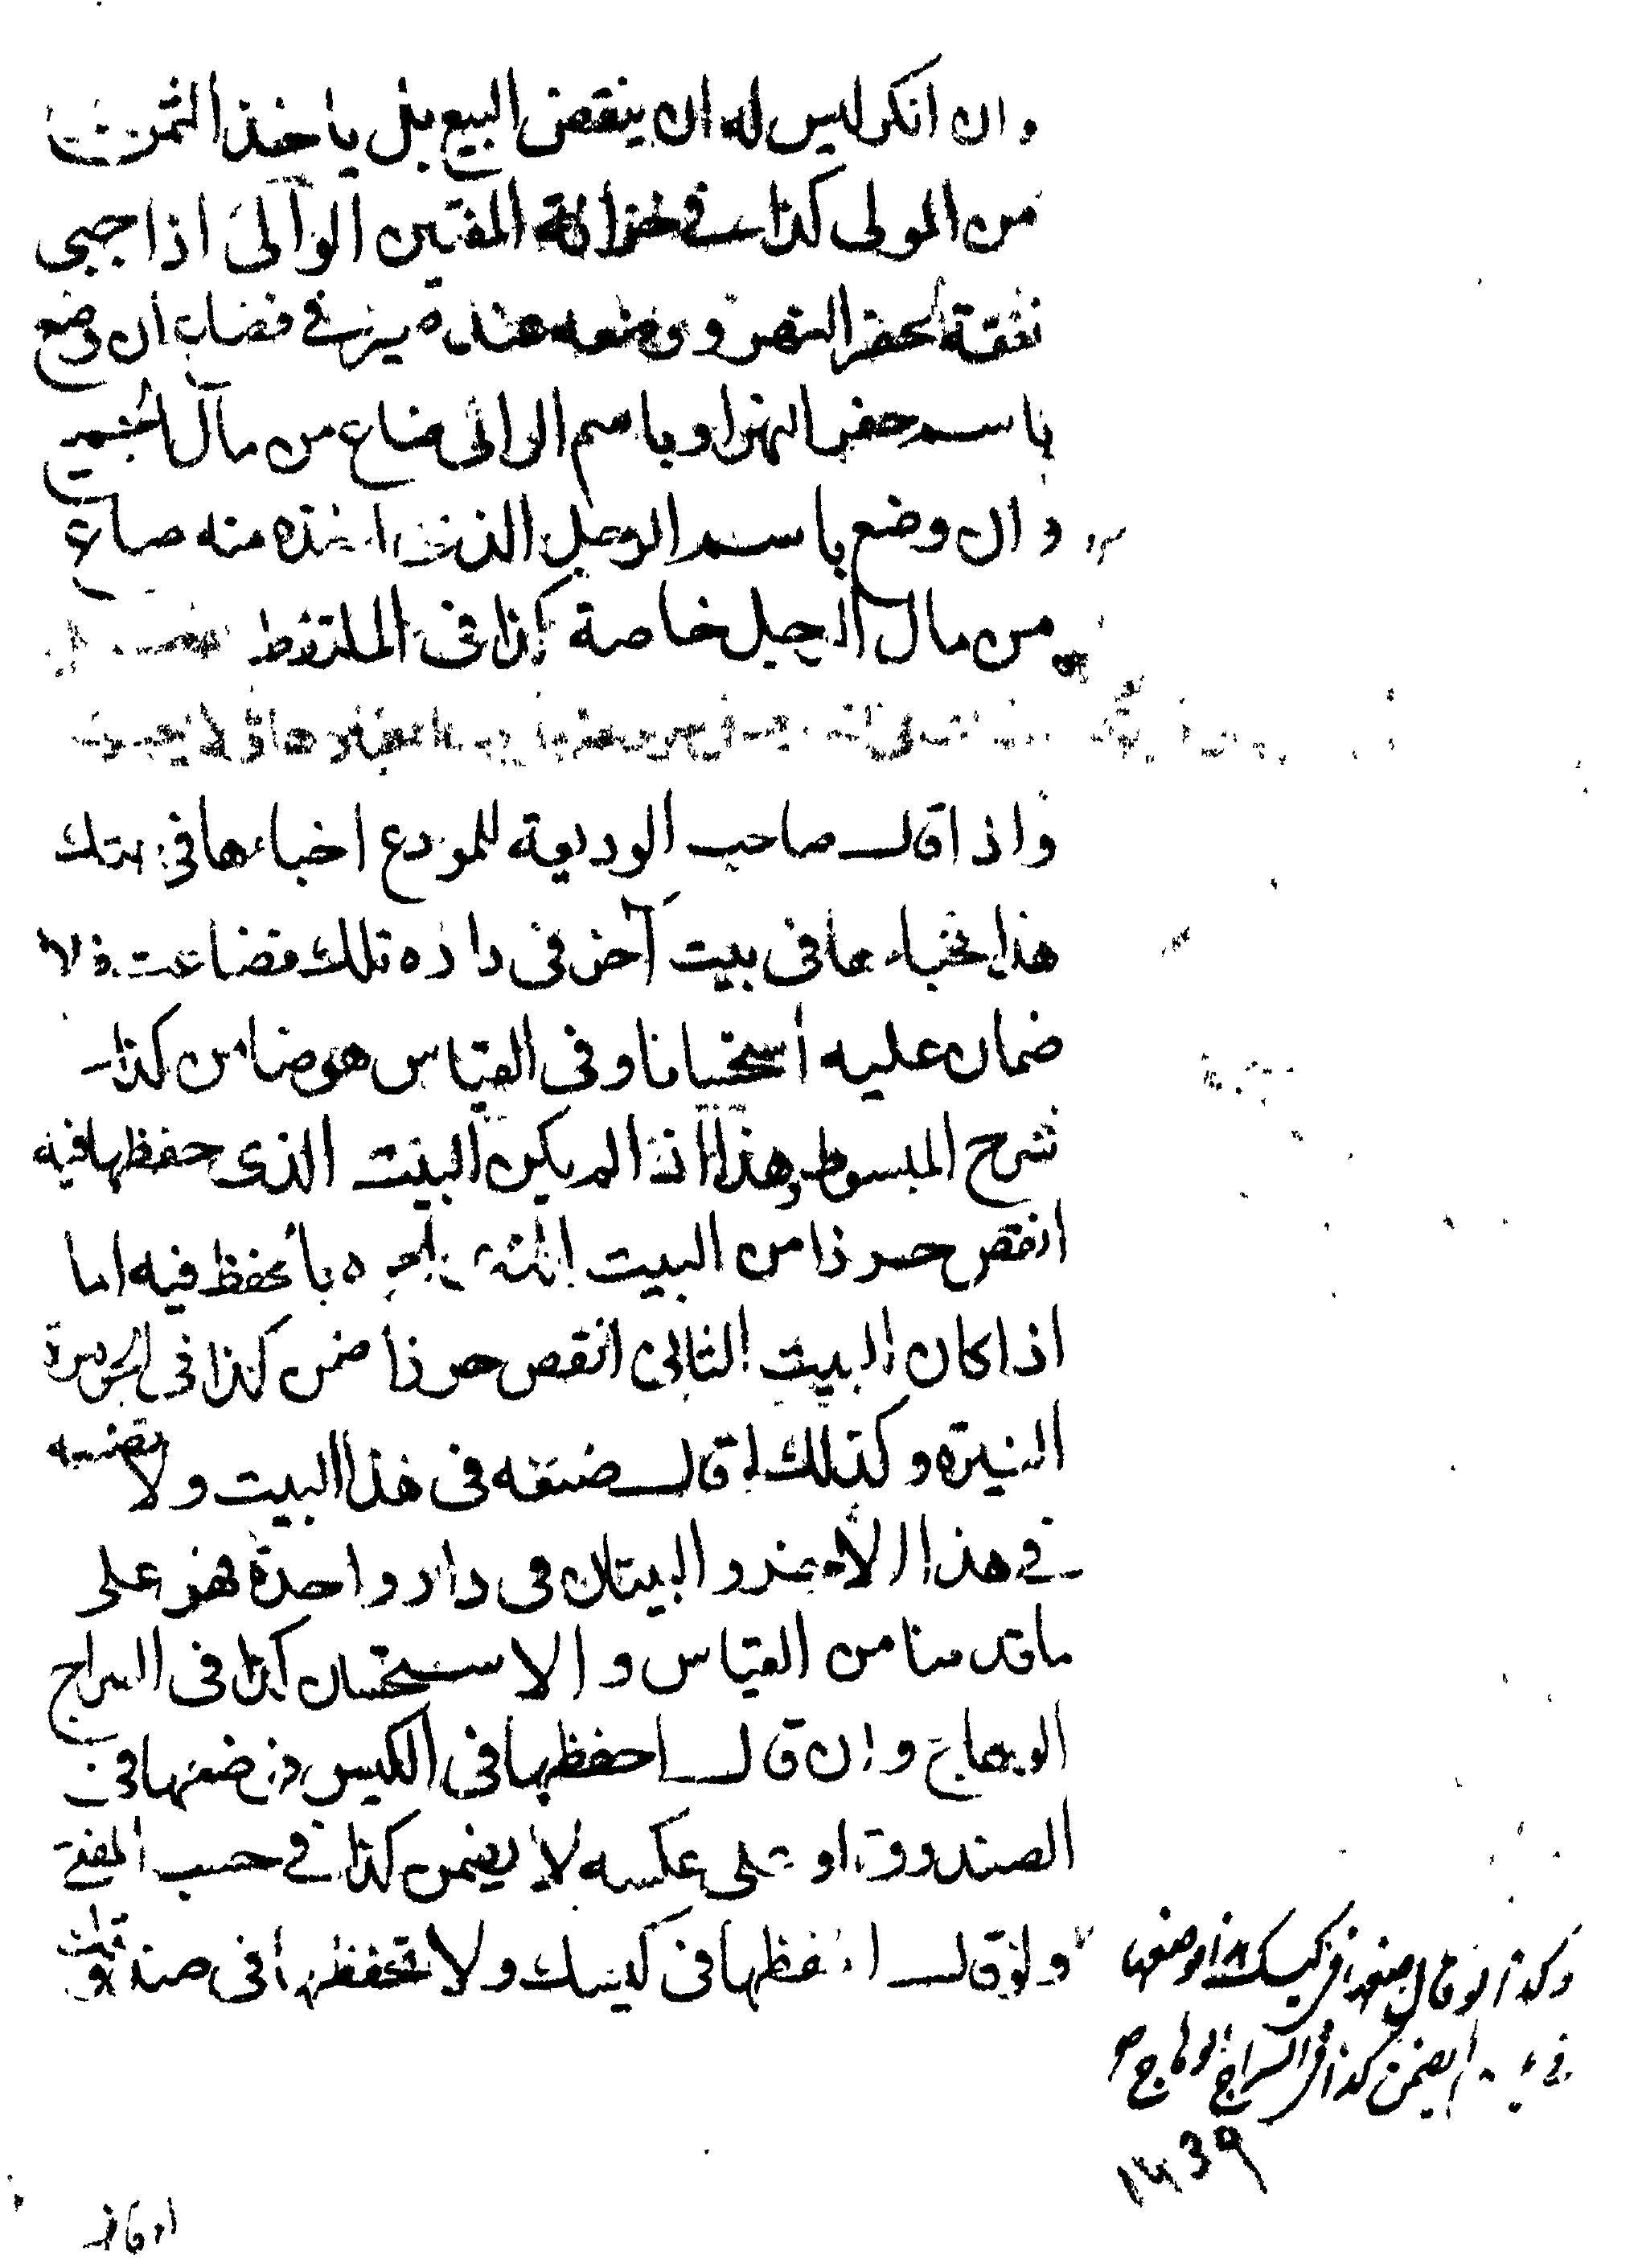 وان انكر ليس له ان ينقض البيع بل ياخذ الثمن
من المولى كذا في خزانة المفتين الوالى اذا جبى
نفقة لحفر النهر ووضعه عند صيرفي فضاع ان وضع
باسم حفر النهر او باسم الوالى ضاع من مال الجميع
وان وضع باسم الرجل الذى اخذه منه ضاع
من مال الرجل خاصة كذا فى الملتقط
واذا قال صاحب الوديعة للمودع اخباءها فى بيتك
هذا فخباءها فى بيت آخر فى داره تلك فضاعت فلا
ضمان عليه استحسانا وفى القياس هو ضامن كذا
شرح المبسوط وهذا اذا لم يكن البيت الذى حفظها فيه
انقص حرزا من البيت الذى امره بالحفظ فيه اما
اذا كان البيت الثانى انقص حرزا ضمن كذا فى الجوهرة
النيرة وكذلك لو قال ضعه فى هذا البيت ولا تضعه
في هذا الأخر والبيتان فى دار واحدة فهو على
ما قدمنا من القياس والاستحسان كذا فى السراج
الوهاج وان قال احفظها فى الكيس فوضعها فى
الصندوق او على عكسه لا يضمن كذا في حسب المفتي
ولو قال احفظها فى كيسك ولا تحفظها فى صندوقك
وكذا لو قال ضعها في كيسك هذا فوضعها
في لا يضمن كذا في السراج الوهاج